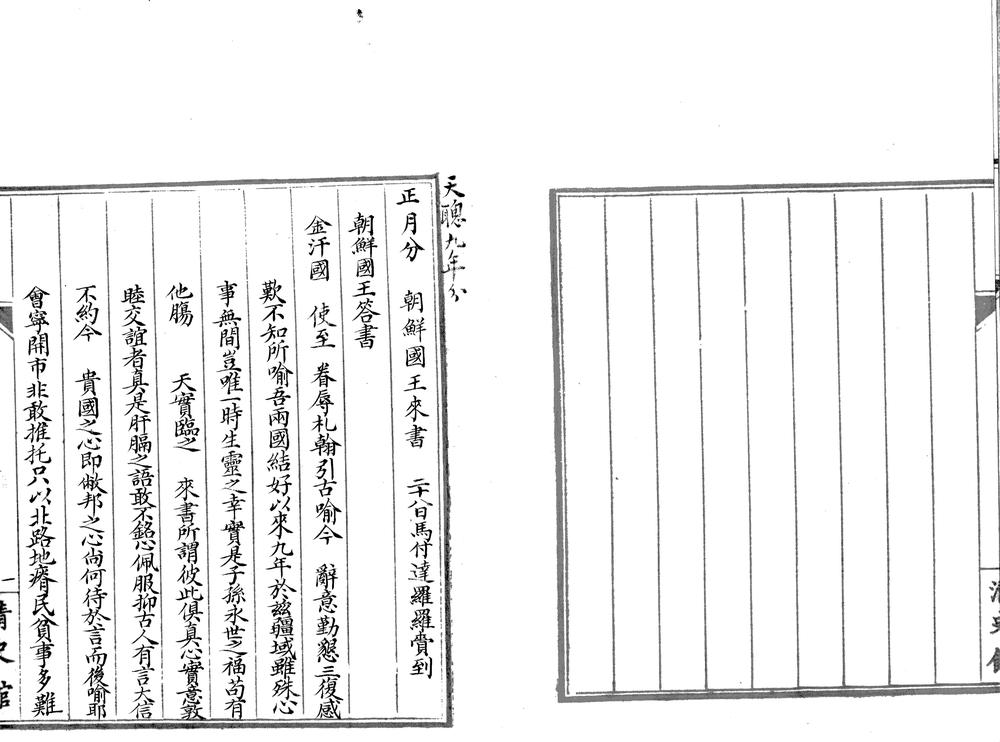 天聰九年分
正月分 朝鮮國王來書 二十八日馬付達羅羅賫到
朝鮮國王答書
金汗國 使至 眷辱札翰引古喻今 辭意勤懇三復感
歎不知所喻吾兩國結好以來九年於茲疆域雖殊心
事無間豈唯一時生靈之幸實是子孫永世之福苟有
他膓 天實臨之 來書所謂彼此俱真心實意敦
睦交誼者真是肝膈之語敢不銘心佩服抑古人有言大信
不約今 貴國之心即敝邦之心尚何待於言而後喻耶
會寧開市非敢推托只以北路地瘠民貧事多難
一
清史館
清史館